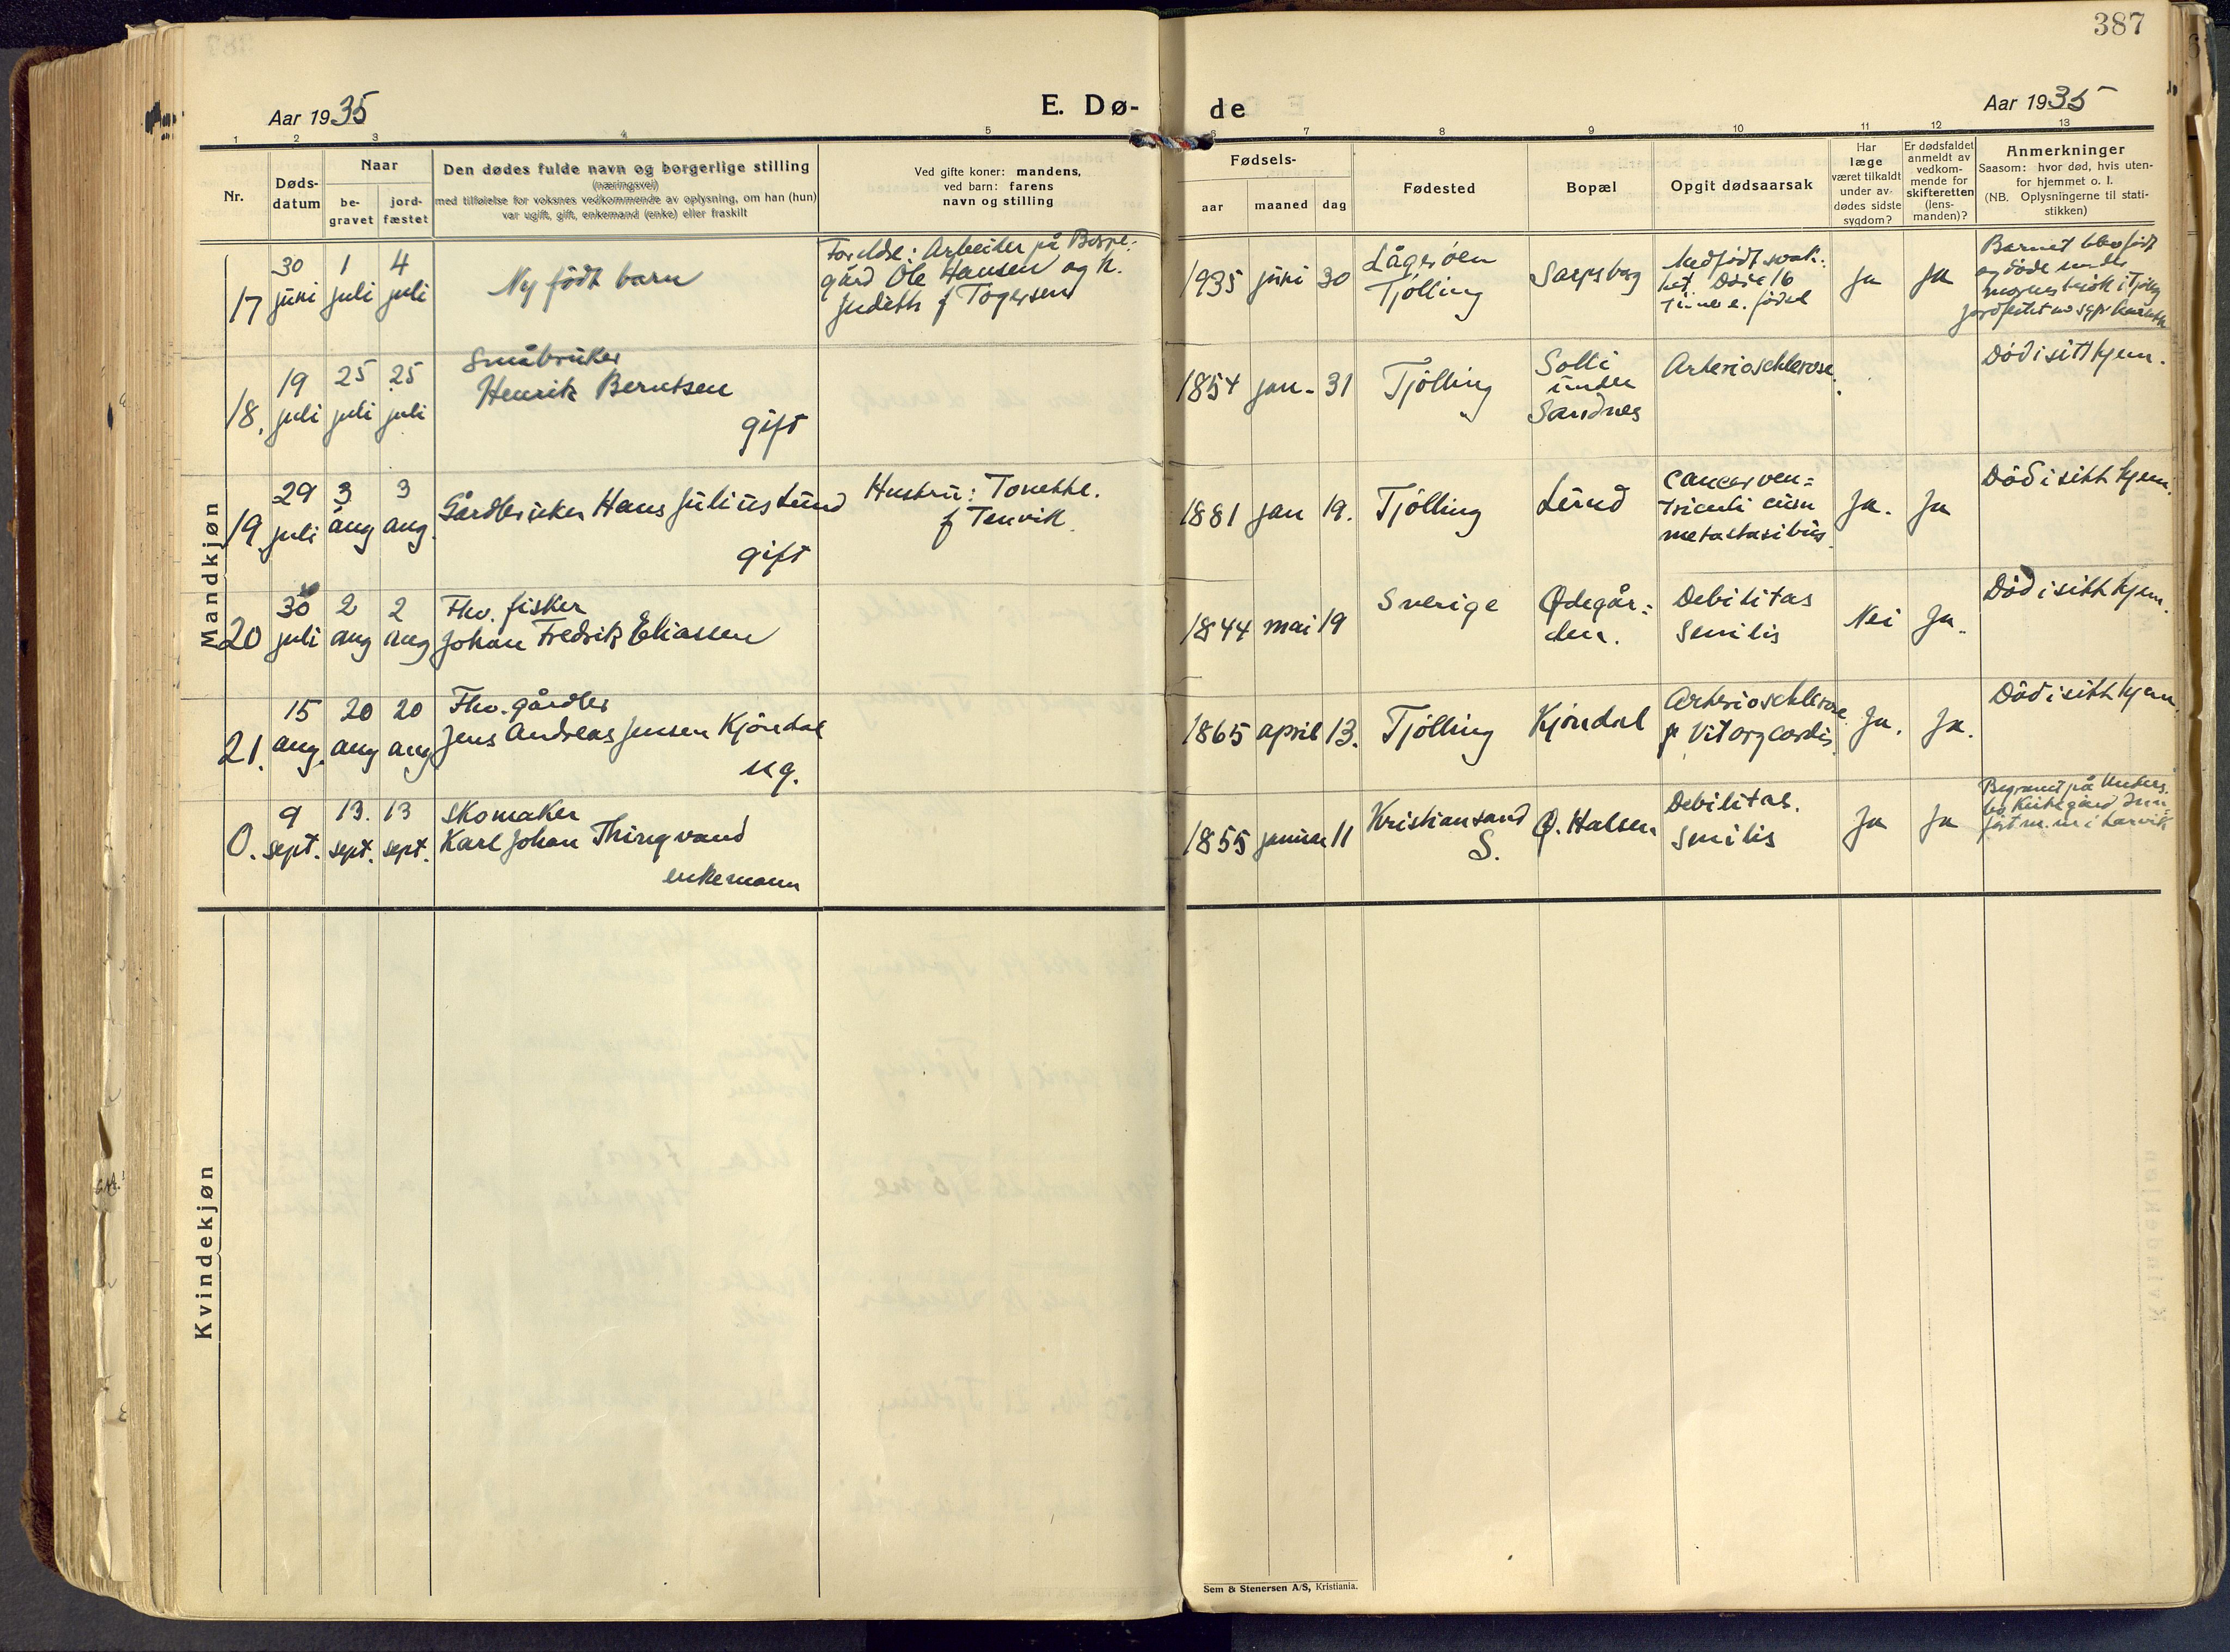 387
Aar 1935
E. Dø-
de
Aar 1935
1 2 3 4 5
6 7 8 9 10 11 12 13
Nr.
Døds-
datum
Naar
be-
gravet
jord-
fæstet
Den dødes fulde navn og borgerlige stilling
(næringsvei)
med tilføielse for voksnes vedkommende av oplysning, om han (hun)
var ugift, gift, enkemand (enke) eller fraskilt
Ved gifte koner: mandens,
ved barn: farens
navn og stilling
Fødsels-
aar
maaned
dag
Fødested
Bopæl
Opgit dødsaarsak
Har
læge
været tilkaldt
under av-
dødes sidste
sygdom?
Er dødsfaldet
anmeldt av
vedkom-
mende for
skifteretten
(lens-
manden)?
Anmerkninger
Saasom: hvor død, hvis uten-
for hjemmet o. l.
(NB. Oplysningerne til stati-
stikken)
Mandkjøn
17
30
juni
1
juli
4
juli
Ny født barn
Foreldre: Arbeider på
gård Ole Hansen og h.
Judith f Togersen
1935 juni 30
Lågerøen
Tjølling
Sarpsborg
Medfødt svak-
het. Døde 16
e. fødsel
Ja
Ja
Barnet blev født
og døde under
mornes besøk i Tjølling
18.
19
juli
25
juli
25
juli
Småbruker
Henrik Berntsen
gift
1854 jan. 31
Tjölling
Solti
under
Sandnes
Arterioschlerose.
Död i sitt hjem.
19
29
juli
3
aug
3
aug.
Gårdbruker Hans Julius Lund
gift
Hustru: Tonette.
f Tenvik.
1881 jan 19.
Tjölling
Lund
Cancer ven=
triculi cum
metastasibus
Ja.
Ja
Död i sitt hjem.
20
30
juli
2
aug
2
aug
Fhv. fisker
Johan Fredrik Eliassen
1844 mai 19
Sverige
Ødegår=
den.
Debilitas
Senilis
Nei
Ja.
Död i sitt hjem.
21.
15
aug.
20
aug
20
aug
Fhv. gårdbr
Jens Andreas Jensen Kjöndal
ug.
1865 april 13.
Tjölling
Kjöndal
Arterioschlerose
Vit org cordis.
Ja.
Ja.
Död i sitt hjem.
0.
9
sept.
13.
sept.
13
sept.
Skomaker
Karl Johan Thingvand
enkemann
1855 januar 11
Kristiansand
S.
Ø. Halsen
Debilitas.
Senilis
Ja
Ja
Begravet på Unders-
bo Kirkegård Inn-
ført m. nr i Larvik
Kvindekjøn
Sem & Stenersen A/S, Kristiania.